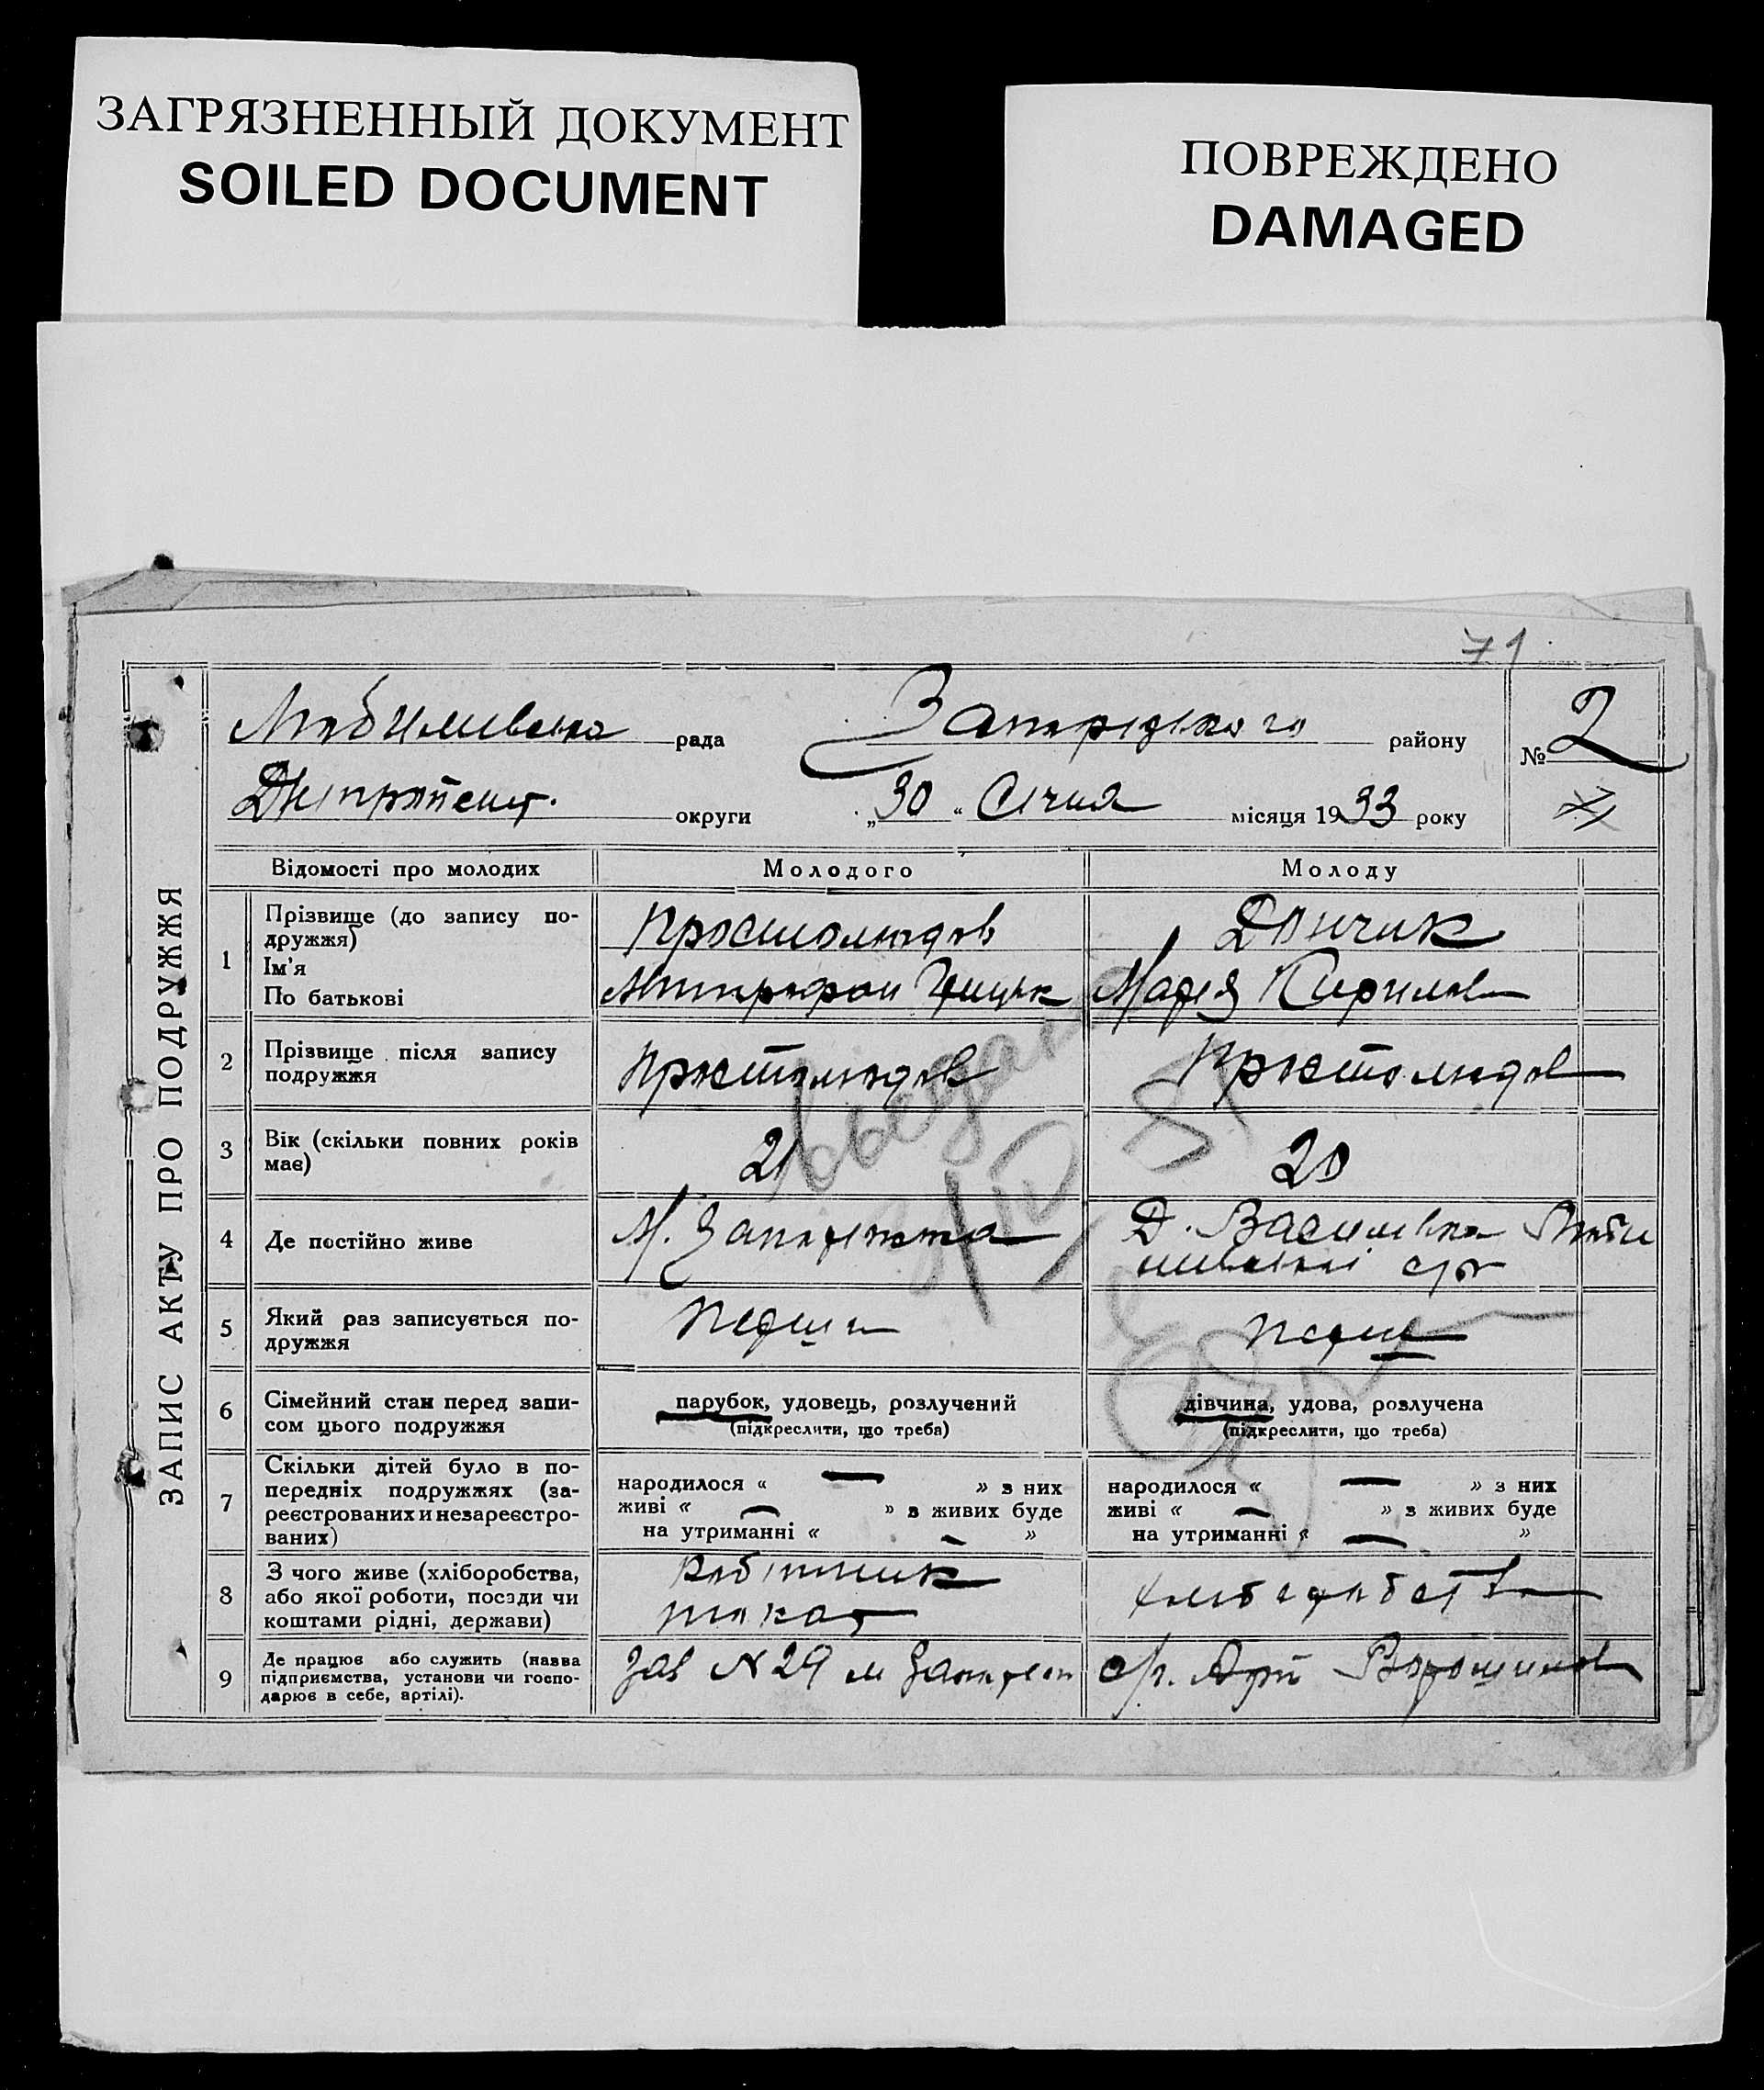 ЗАГРЯЗНЕННЫЙ ДОКУМЕНТ
SOILED DOCUMENT
ПОВРЕЖДЕНО
DAMAGED
71
ЗАПИС АКТУ ПРО ПОДРУЖЖЯ
рада Запорізького району № 2
округи „30“ Січня місяця 1933 року
Відомості про молодих Молодого Молоду
1 Прізвище (до запису по-
дружжя)
Ім'я
По батькові
Простолюдов Дончик
Митрофан Марія Кирилов
2 Прізвище після запису
подружжя
Простолюдов Простолюдов
3 Вік (скільки повних років
має)
21 20
4 Де постійно живе
М. Запоріжжя Д. Василівка
5 Який раз записується по-
дружжя
6 Сімейний стан перед запи-
сом цього подружжя
парубок, удовець, розлучений
(підкреслити, що треба)
дівчина, удова, розлучена
(підкреслити, що треба)
7 Скільки дітей було в по-
передніх подружжях (за-
реєстрованих и незареєстро-
ваних)
народилося « — » з них
живі « — » з живих буде
на утриманні « — »
народилося « — » з них
живі « — » з живих буде
на утриманні « — »
8 З чого живе (хліборобства,
або якої роботи, посади чи
коштами рідні, держави)
Робітник
токар
9 Де працює або служить (назва
підприємства, установи чи госпо-
дарює в себе, артілі).
Зав N 29 м Запоріж с/г. Арт Ворошилов